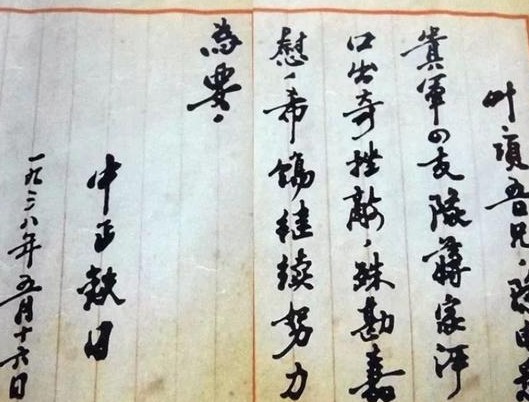 叶項吾兄、
貴軍四支隊蔣家河
口出奇挫敵、殊勘嘉
慰、希飭继續努力
為要、
中正銑日
一九三八年五月十六日